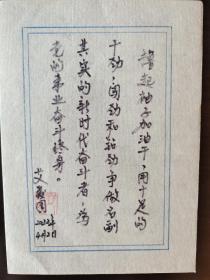 撸起袖子加油干，用十足的
干劲，闯劲和钻劲争做名副
其实的新时代奋斗者，为
党的事业奋斗终身。
艾
2022年
4月2日